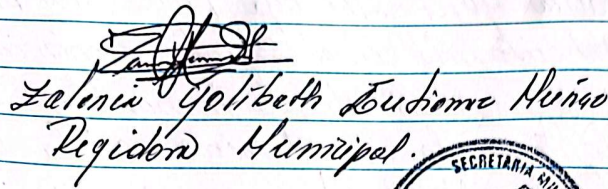 Zalenia Yolibeth Gutierrez Muñoz
Regidora Municipal.
SECRETARIA MU